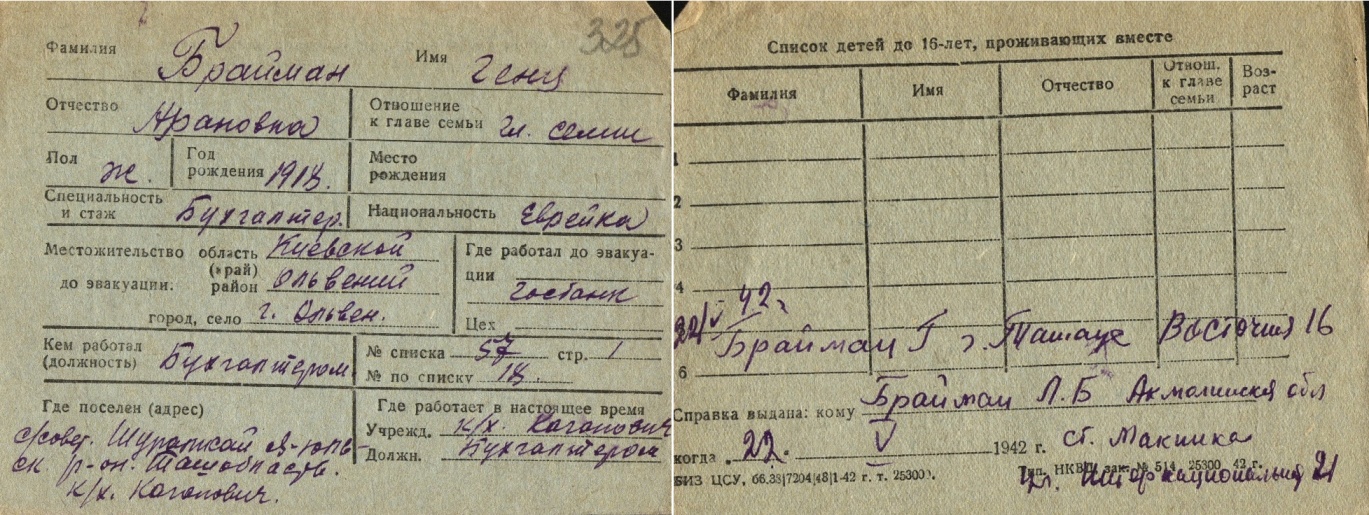 325
Фамилия Брайман Имя Геня
Отчество Арановна Отношение к главе семьи гл. семьи
Пол ж. Год рождения 1918. Место рождения
Специальность и стаж Бухгалтер. Национальность Еврейка
Местожительство до эвакуации: область (край) Киевской
район Ольвений
город, село г. Ольвен.
Где работал до эвакуации Госбанк
Цех
Кем работал (должность) Бухгалтером
№ списка 57 стр. 1
№ по списку 18.
Где поселен (адрес)
с/совет.
р-он. Ташобласть.
к/х. Коганович.
Где работает в настоящее время
Учрежд. к/х. Коганович
Должн. Бухгалтером
Список детей до 16-лет, проживающих вместе
Фамилия Имя Отчество Отнош. к главе семьи Возраст
1
2
3
4
22/V 42 г
Брайман Г г. Восточная 16
6
Справка выдана: кому Брайман Л.Б Акмолинская обл
когда 22. V 1942 г. ст. Макинка
БИЗ ЦСУ, 66.38|7204|48|1-42 г. т. 25300. Тип. НКВД зак. № 514 25300 42 г.
ул. Интернациональная 21